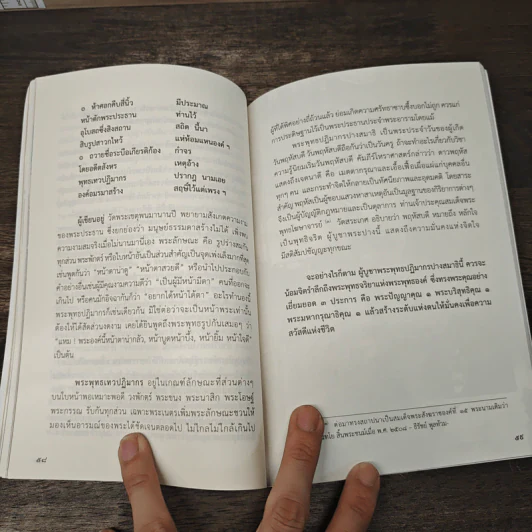 ๏ ห้าศอกคืบสี่นิ้ว มีประมาณ
หน้าตักพระประธาน ท่านไว้
อุโบสถซึ่งสิงสถาน สถิต นี้นา
สิบรูปสาวกไหว้ แห่ห้อมแหนองค์ ฯ
๏ ถวายชื่อระบือเกียรติก้อง กำจร
โดยอดีตสังหร เหตุอ้าง
พุทธเทวปฏิมากร ปรากฏ นามเอย
องค์อมรมาสร้าง สฤษดิ์ไว้แต่เพรง ฯ
ผู้เขียนอยู่ วัดพระเชตุพนมานานปี พยายามสังเกตความงาม
ของพระประธาน ซึ่งยกย่องว่า มนุษย์ธรรมดาสร้างไม่ได้ เพิ่งพบ
ความงามสมจริงเมื่อไม่นานมานี้เอง พระลักษณะ คือ รูปร่างสมกัน
ทุกส่วน พระพักตร์ หรือใบหน้าอันเป็นส่วนสำคัญเป็นจุดเพ่งเล็งมากที่สุด
เช่นพูดกันว่า "หน้าตาน่าดู" "หน้าตาสวยดี" หรือนำไปประกอบกับ
คำอย่างอื่นเช่นผู้มีคุณงามความดีว่า "เป็นผู้มีหน้ามีตา" คนที่ออกจะ
เกินไป หรือคนมักอิจฉากันก็ว่า "อยากได้หน้าได้ตา" อะไรทำนองนี้
พระพุทธปฏิมากรก็เช่นเดียวกัน มิใช่ต่อว่าจะเป็นหน้าพระเท่านั้น
ต้องให้ได้สัดส่วนงดงาม เคยได้ยินพูดถึงพระพุทธรูปกันเสมอๆ ว่า
"แหม ! พระองค์นี้หน้าตาน่ากลัว, หน้าบูดหน้าบึ้ง, หน้ายิ้ม หน้าใจดี"
เป็นต้น
พระพุทธเทวปฏิมากร อยู่ในเกณฑ์ลักษณะที่ส่วนต่างๆ
บนใบหน้าพอเหมาะพอดี วงพักตร์ พระขนง พระนาสิก พระโอษฐ์
พระกรรณ รับกันทุกส่วน เฉพาะพระเนตรเพิ่มพระลักษณะชวนให้
มองเห็นอารมณ์ของพระได้ชัดเจนตลอดไป ไม่ไกลไม่ใกล้เกินไป
๕๘
ผู้ที่ได้พิศอย่างถี่ถ้วนแล้ว ย่อมเกิดความศรัทธาซาบซึ้งบอกไม่ถูก ควรแก่
การประดิษฐานไว้เป็นพระประธานประจำพระอารามโดยแม้
พระพุทธปฏิมากรปางสมาธิ เป็นพระประจำวันของผู้เกิด
วันพฤหัสบดี วันพฤหัสบดีถือกันว่าเป็นวันครู ถ้าจะทำอะไรเกี่ยวกับวิชา
ความรู้นิยมเริ่มวันพฤหัสบดี คัมภีร์โหราศาสตร์กล่าวว่า ดาวพฤหัส
แสดงถึงเจตนาดี คือ เมตตากรุณาและเอื้อเฟื้อเผื่อแผ่แก่บุคคลอื่น
ทุกๆ คน และกระทำจิตให้กลายเป็นทัศนียภาพและอุดมคติ โดยสาระ
สำคัญ พฤหัสเป็นผู้ชอบแสวงหาสาเหตุอันเป็นมูลฐานของกิริยาอาการต่างๆ
จึงเป็นผู้บัญญัติกฎหมายและเป็นตุลาการ ท่านเจ้าประคุณสมเด็จพระ
พุทโฆษาจารย์ วัดสระเกศ อธิบายว่า พฤหัสบดี หมายถึง พลังใจ
เป็นพุทธิจริต ผู้บูชาพระปางนี้ แสดงถึงความมั่นคงแห่งจิตใจ
มีสติสัมปชัญญะทุกขณะ
จะอย่างไรก็ตาม ผู้บูชาพระพุทธปฏิมากรปางสมาธินี้ ควรจะ
น้อมจิตรำลึกถึงพระพุทธจริยาแห่งพระพุทธองค์ ซึ่งทรงพระคุณอย่าง
เยี่ยมยอด ๓ ประการ คือ พระปัญญาคุณ ๑ พระบริสุทธิคุณ ๑
พระมหากรุณาธิคุณ ๑ แล้วสร้างระดับแห่งตนให้มั่นคงเพื่อความ
สวัสดีแห่งชีวิต
ต่อมาทรงสถาปนาเป็นสมเด็จพระสังฆราชองค์ที่ ๑๕ พระนามเดิมว่า
สิ้นพระชนม์เมื่อ พ.ศ. ๒๕๐๘ - ธีรัชย์ พูลท้วม
๕๙